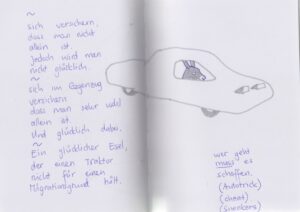 ~
sich versichern,
dass man nicht
allein ist.
jedoch wird man
nicht glücklich.
~
sich im Gegenzug
versichern
dass man sehr wohl
allein ist.
Und glücklich dabei.
~
Ein glücklicher Esel,
der einen Traktor
nicht für einen
Migrationsgrund hält.
wer geht
muss es
schaffen.
(Autotrick)
(cheat)